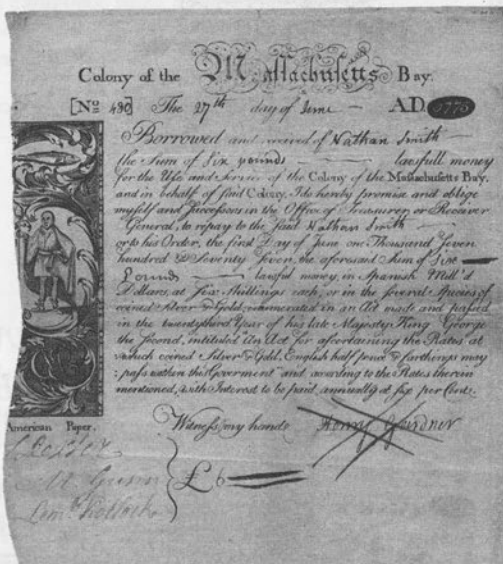 Colony of the Massachusetts Bay.
[No 490] The 27th day of June A.D. 1775
Borrowed and received of Nathan Smith
the Sum of Six pounds lawfull money
for the Use and Service of the Colony of the Massachusetts Bay,
and in behalf of said Colony, I do hereby promise and oblige
myself and Successors in the Office of Treasurer or Receiver
General, to repay to the said Nathan Smith
or to his Order, the first Day of June one Thousand Seven
hundred & Seventy Seven, the aforesaid Sum of Six
Pounds lawful money, in Spanish Mill'd
Dollars, at Six Shillings each, or in the several Species of
coined Silver & Gold, enumerated in an Act made and passed
in the twentythird Year of his late Majesty King George
the second, intituled An Act for ascertaining the Rates at
which coined Silver & Gold, English half pence & farthings may
pass within this Goverment and according to the Rates therein
mentioned, with Interest to be paid annually at six per Cent:
Witness my hand Henry Gardner
American Paper.
£6